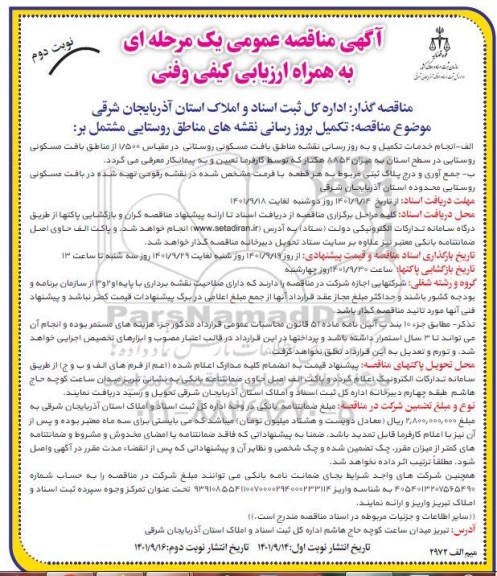 نوبت دوم
آگهی مناقصه عمومی یک مرحله ای
به همراه ارزیابی کیفی وفنی
مناقصه گذار: اداره کل ثبت اسناد و املاک استان آذربایجان شرقی
موضوع مناقصه: تکمیل بروز رسانی نقشه های مناطق روستایی مشتمل بر:
الف-انجام خدمات تکمیل و به روز رسانی نقشه مناطق بافت مسکونی روستائی در مقیاس ۱/۵۰۰ از مناطق بافت مسکونی
روستایی در سطح استان به میزان ۸۸۵۴ هکتار که توسط کارفرما تعیین و به پیمانکار معرفی می گردد.
ب- جمع آوری و درج پلاک ثبتی مربوط به هر قطعه با فرمت مشخص شده در نقشه رقومی تهیه شده در بافت مسکونی
روستایی محدوده استان آذربایجان شرقی
مهلت دریافت اسناد: از تاریخ ۱۴۰۱/۹/۱۴ روز دوشنبه لغایت ۱۴۰۱/۹/۱۸
محل دریافت اسناد: کلیه مراحل برگزاری مناقصه از دریافت اسناد تا ارائه پیشنهاد مناقصه گران و بازگشایی پاکتها از طریق
درگاه سامانه تدارکات الکترونیکی دولت (ستاد) به آدرس (www.setadiran.ir) انجام خواهد شد. و پاکت الف حاوی اصل
ضمانتنامه بانکی معتبر نیز علاوه بر سایت ستاد تحویل دبیرخانه مناقصه گذار خواهد شد.
تاریخ بارگذاری اسناد مناقصه و قیمت پیشنهادی: از روز ۱۴۰۱/۹/۱۹ روز شنبه لغایت ۱۴۰۱/۹/۲۹ روز سه شنبه تا ساعت ۱۳
تاریخ بازگشایی پاکتها: ساعت ۱۴۰۱/۹/۳۰روز چهارشنبه
گروه و رشته شغلی: شرکتهایی اجازه شرکت در مناقصه را دارند که دارای صلاحیت نقشه برداری با پایه ۱و۲و۳ از سازمان برنامه و
بودجه کشور باشند و حداکثر مبلغ مجاز عقد قرارداد آنها از جمع مبلغ اعلامی در برگ پیشنهادات قیمت کمتر نباشد و پیشنهاد
فنی آنها مورد تائید مناقصه گذار باشد
تذکر- مطابق جزء ۱۰ بند ب آئین نامه ماده ۵۱ قانون محاسبات عمومی قرارداد مذکور جزء هزینه های مستمر بوده و انجام آن
می تواند تا ۳ سال استمرار داشته باشد و پرداختها در این قرارداد در قالب اعتبار مصوب و ابزارهای تخصیص اجرایی خواهد
شد. و تورم و تعدیل به این قرارداد تعلق نخواهد گرفت.
محل تحویل پاکتهای مناقصه: پیشنهاد قیمت به انضمام کلیه مدارک اعلام شده (اعم از فرم های الف و ب و ج) از طریق
سامانه تدارکات الکترونیک اعلام گردد و پاکت الف اصل حاوی ضمانتنامه بانکی به نشانی تبریز میدان ساعت کوچه حاج
هاشم طبقه چهارم دبیرخانه اداره کل ثبت اسناد و املاک استان آذربایجان شرقی تحویل و رسید دریافت نمایند.
نوع و مبلغ تضمین شرکت در مناقصه: مبلغ ضمانتنامه بانکی در وجه اداره کل ثبت اسناد و املاک استان آذربایجان شرقی به
مبلغ ۲,۸۰۰,۰۰۰,۰۰۰ ریال (معادل دویست و هشتاد میلیون تومان) میباشد.که می بایستی برای سه ماه معتبر بوده و پس از
آن نیز با اعلام کارفرما قابل تمدید باشد. ضمنا به پیشنهاداتی که فاقد ضمانتنامه یا امضای مخدوش و مشروط و ضمانتنامه
های کمتر از میزان مقرر، چک تضمین شده و چک شخصی و نظایر آن و پیشنهاداتی که پس از انقضاء مدت مقرر در آگهی واصل
شود. مطلقاً ترتیب اثر داده نخواهد شد.
همچنین شرکت های واجد شرایط بجای ضمانت نامه بانکی می توانند مبلغ شرکت در مناقصه را به حساب شماره
به شناسه واریز
تحت عنوان تمرکز وجوه سپرده ثبت اسناد و
املاک تبریز واریز و ارائه نمایند.
((سایر اطلاعات و جزئیات مربوطه در اسناد مناقصه مندرج است.))
آدرس: تبریز میدان ساعت کوچه حاج هاشم اداره کل ثبت اسناد و املاک استان آذربایجان شرقی
تاریخ انتشار نوبت اول:۱۴۰۱/۹/۱۴ تاریخ انتشار نوبت دوم:۱۴۰۱/۹/۱۶
میم الف ۲۹۷۲